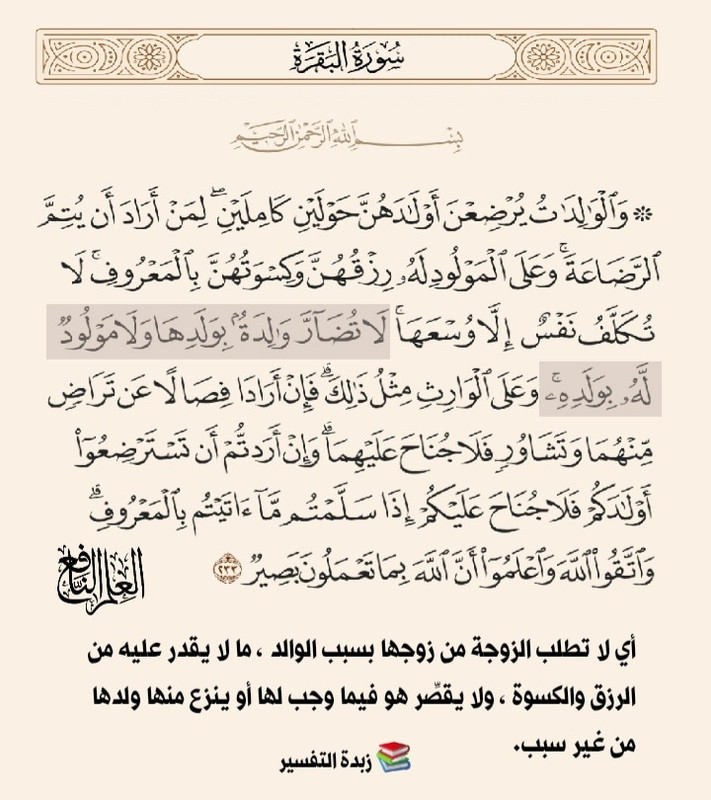 سُورَةُ البَقَرَةِ
بِسْمِ ٱللَّهِ ٱلرَّحْمَٰنِ ٱلرَّحِيمِ
۞ وَٱلْوَٰلِدَٰتُ يُرْضِعْنَ أَوْلَٰدَهُنَّ حَوْلَيْنِ كَامِلَيْنِۖ لِمَنْ أَرَادَ أَن يُتِمَّ
ٱلرَّضَاعَةَۚ وَعَلَى ٱلْمَوْلُودِ لَهُۥ رِزْقُهُنَّ وَكِسْوَتُهُنَّ بِٱلْمَعْرُوفِۚ لَا
تُكَلَّفُ نَفْسٌ إِلَّا وُسْعَهَاۚ لَا تُضَآرَّ وَٰلِدَةُۢ بِوَلَدِهَا وَلَا مَوْلُودٌ
لَّهُۥ بِوَلَدِهِۦۚ وَعَلَى ٱلْوَارِثِ مِثْلُ ذَٰلِكَۗ فَإِنْ أَرَادَا فِصَالًا عَن تَرَاضٍ
مِّنْهُمَا وَتَشَاوُرٍ فَلَا جُنَاحَ عَلَيْهِمَاۗ وَإِنْ أَرَدتُّمْ أَن تَسْتَرْضِعُوٓا۟
أَوْلَٰدَكُمْ فَلَا جُنَاحَ عَلَيْكُمْ إِذَا سَلَّمْتُم مَّآ ءَاتَيْتُم بِٱلْمَعْرُوفِۗ
وَٱتَّقُوا۟ ٱللَّهَ وَٱعْلَمُوٓا۟ أَنَّ ٱللَّهَ بِمَا تَعْمَلُونَ بَصِيرٌ ٢٣٣
العلم النافع
أي لا تطلب الزوجة من زوجها بسبب الوالد ، ما لا يقدر عليه من
الرزق والكسوة ، ولا يقصِّر هو فيما وجب لها أو ينزع منها ولدها
من غير سبب.
📚 زبدة التفسير